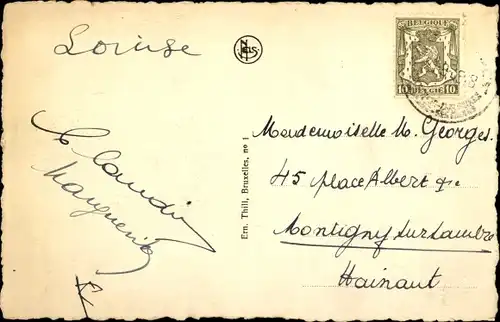 Louise
Claudine
Marguerite
Ern. Thill, Bruxelles, no 1
NELS
BELGIQUE
10 BELGIE 10
Mademoiselle M. Georges.
45 place Albert
Montigny sur Sambre
Hainaut